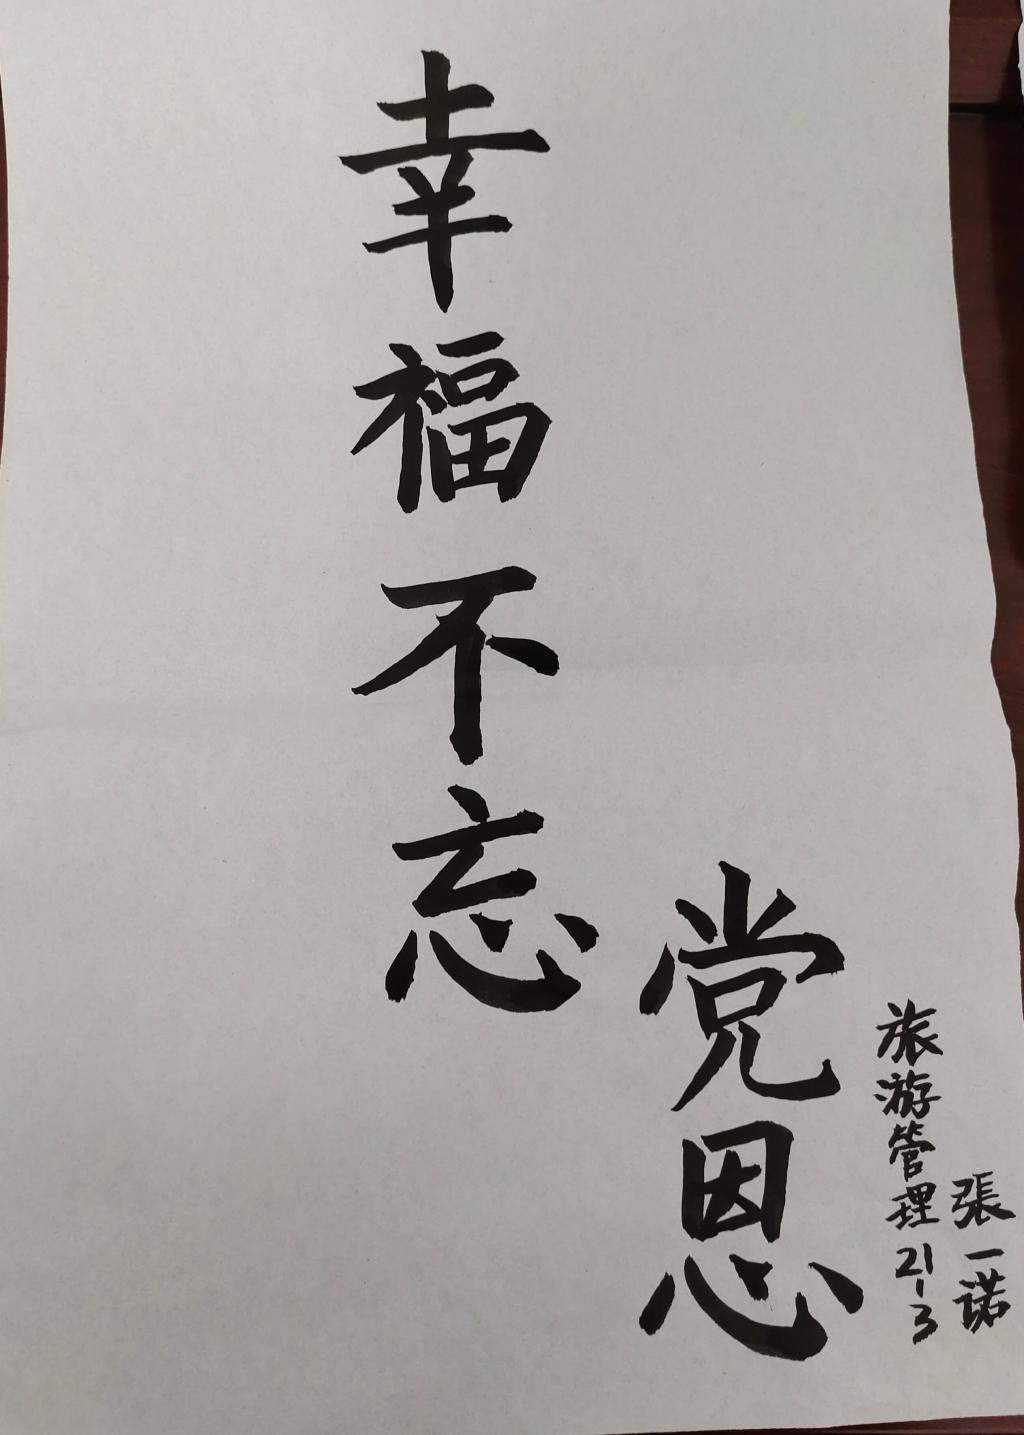 幸福不忘
党恩
旅游管理21-3
張一诺